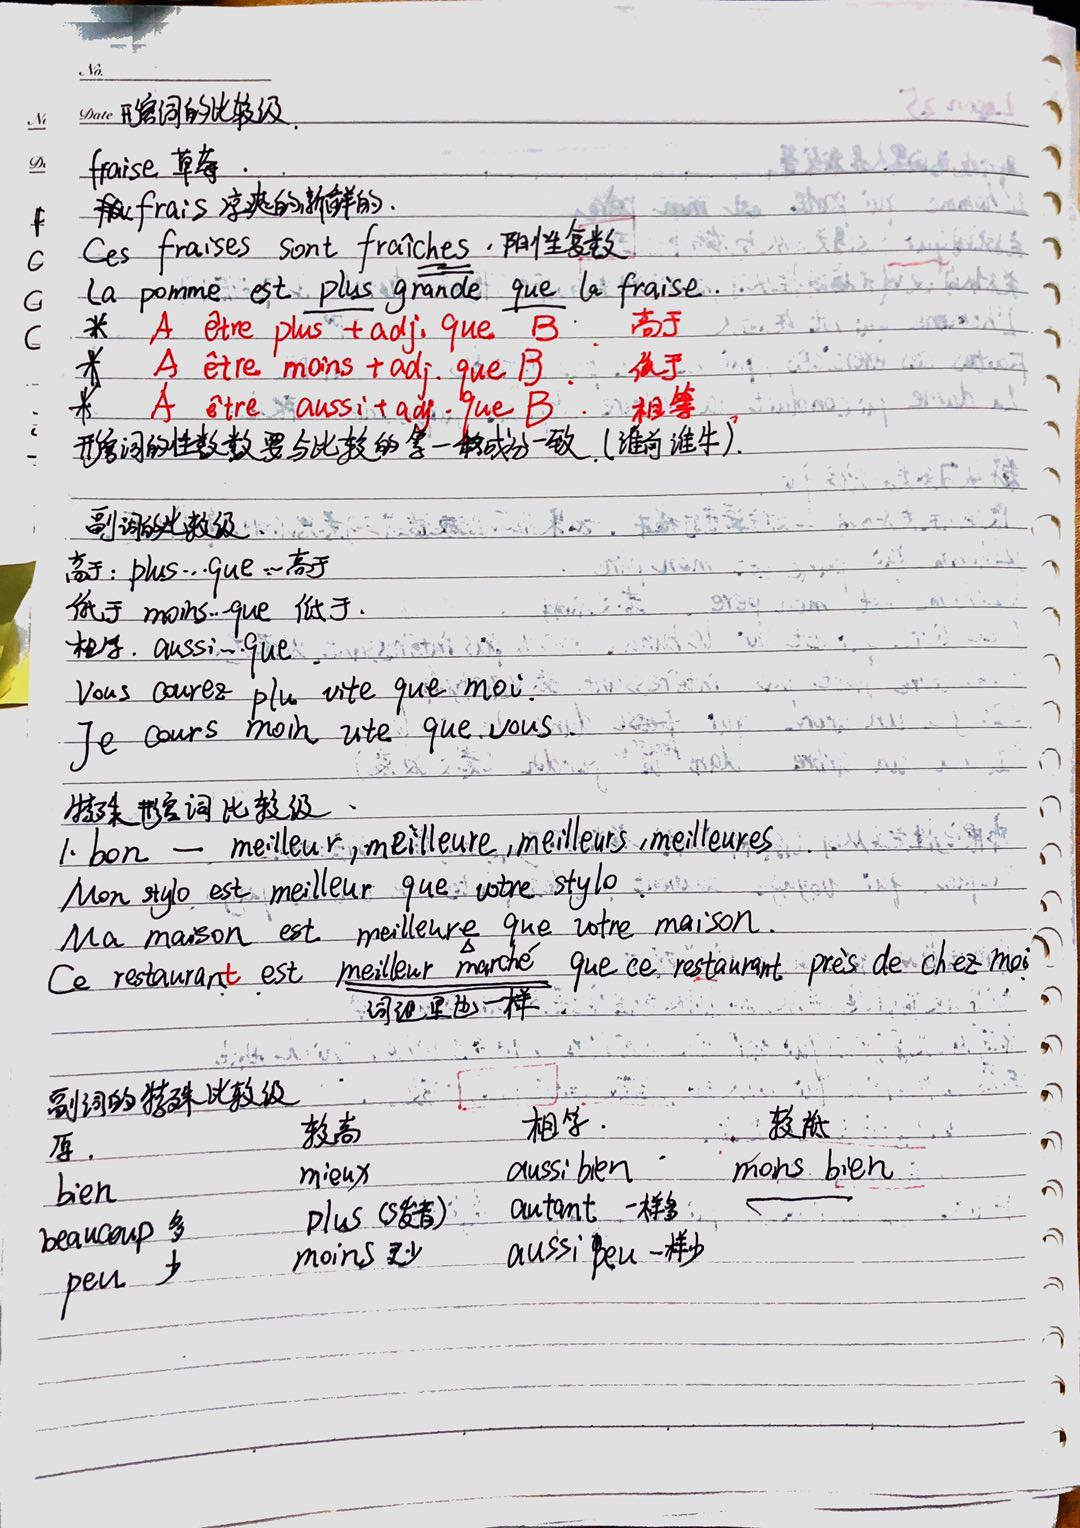 No.
Date 形容词的比较级.
fraise 草莓.
frais 凉爽的 新鲜的.
Ces fraises sont fraîches. 阴性复数
La pomme est plus grande que la fraise.
* A être plus + adj. que B. 高于
* A être moins + adj. que B. 低于
* A être aussi + adj. que B. 相等
形容词的性数数要与比较的第一成分一致.(谁前谁牛).
副词的比较级.
高于: plus...que...高于
低于 moins...que 低于.
相等. aussi...que.
Vous courez plu vite que moi.
Je cours moin vite que vous.
特殊形容词比较级.
1. bon — meilleur, meilleure, meilleurs, meilleures
Mon stylo est meilleur que votre stylo.
Ma maison est meilleure que votre maison.
Ce restaurant est meilleur marché que ce restaurant près de chez moi
词组里也一样.
副词的特殊比较级
原. 较高 相等. 较低
bien mieux aussi bien moins bien
beaucoup 多 plus (S发音) autant 一样多
peu 少 moins 更少 aussi peu 一样少